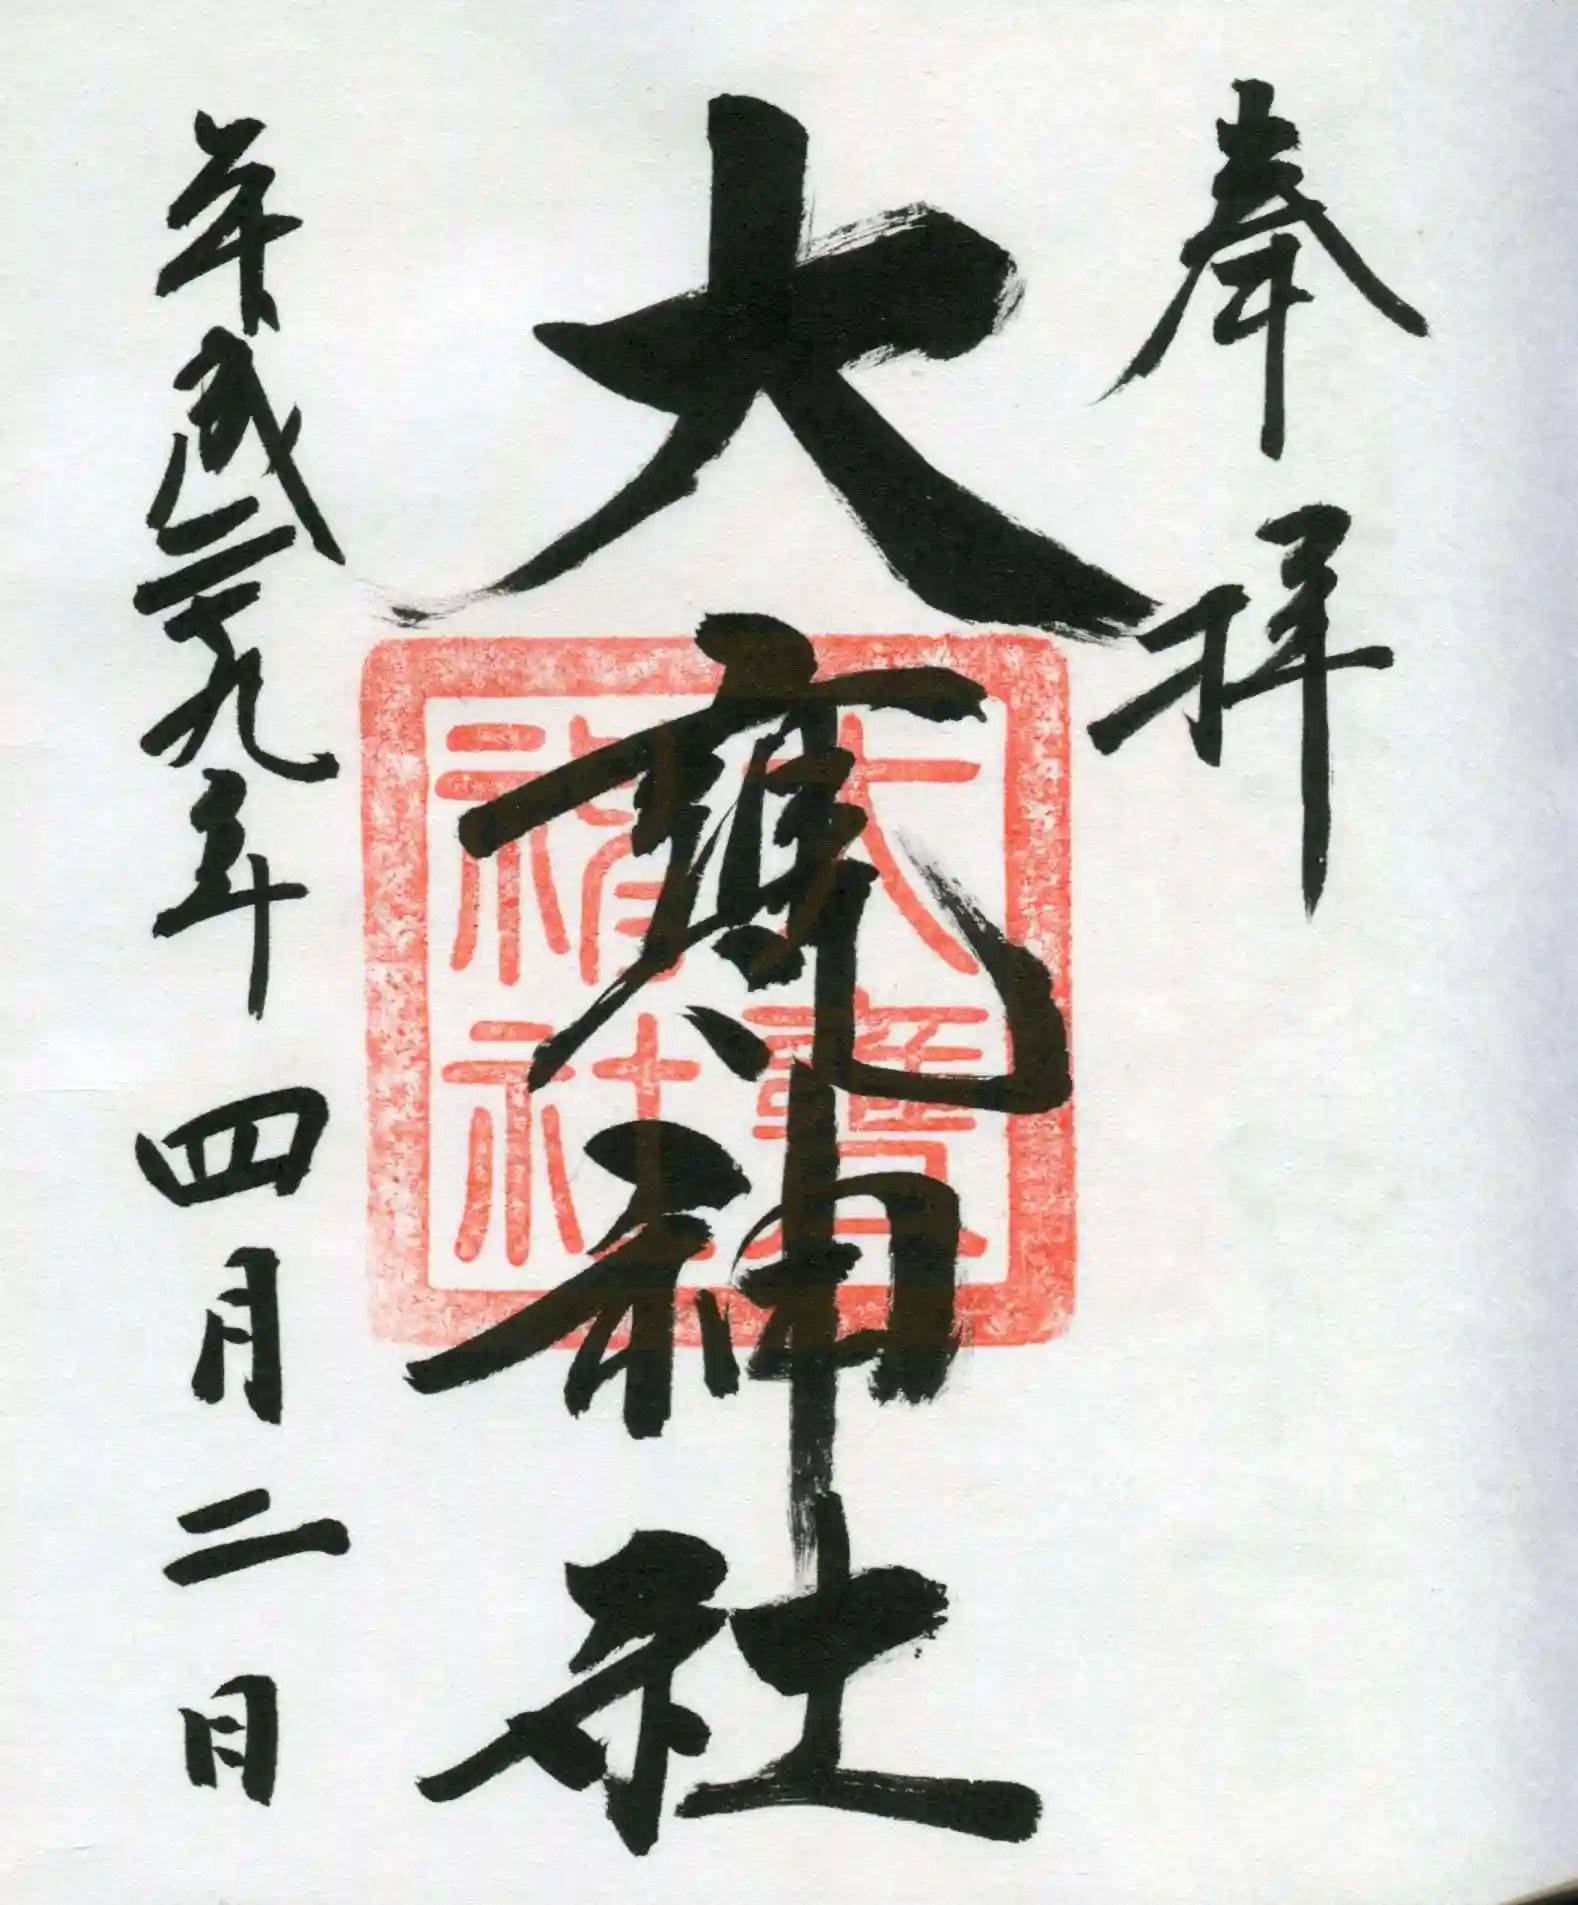 奉拝
大甕神社
大甕
神社
平成二十九年四月二日